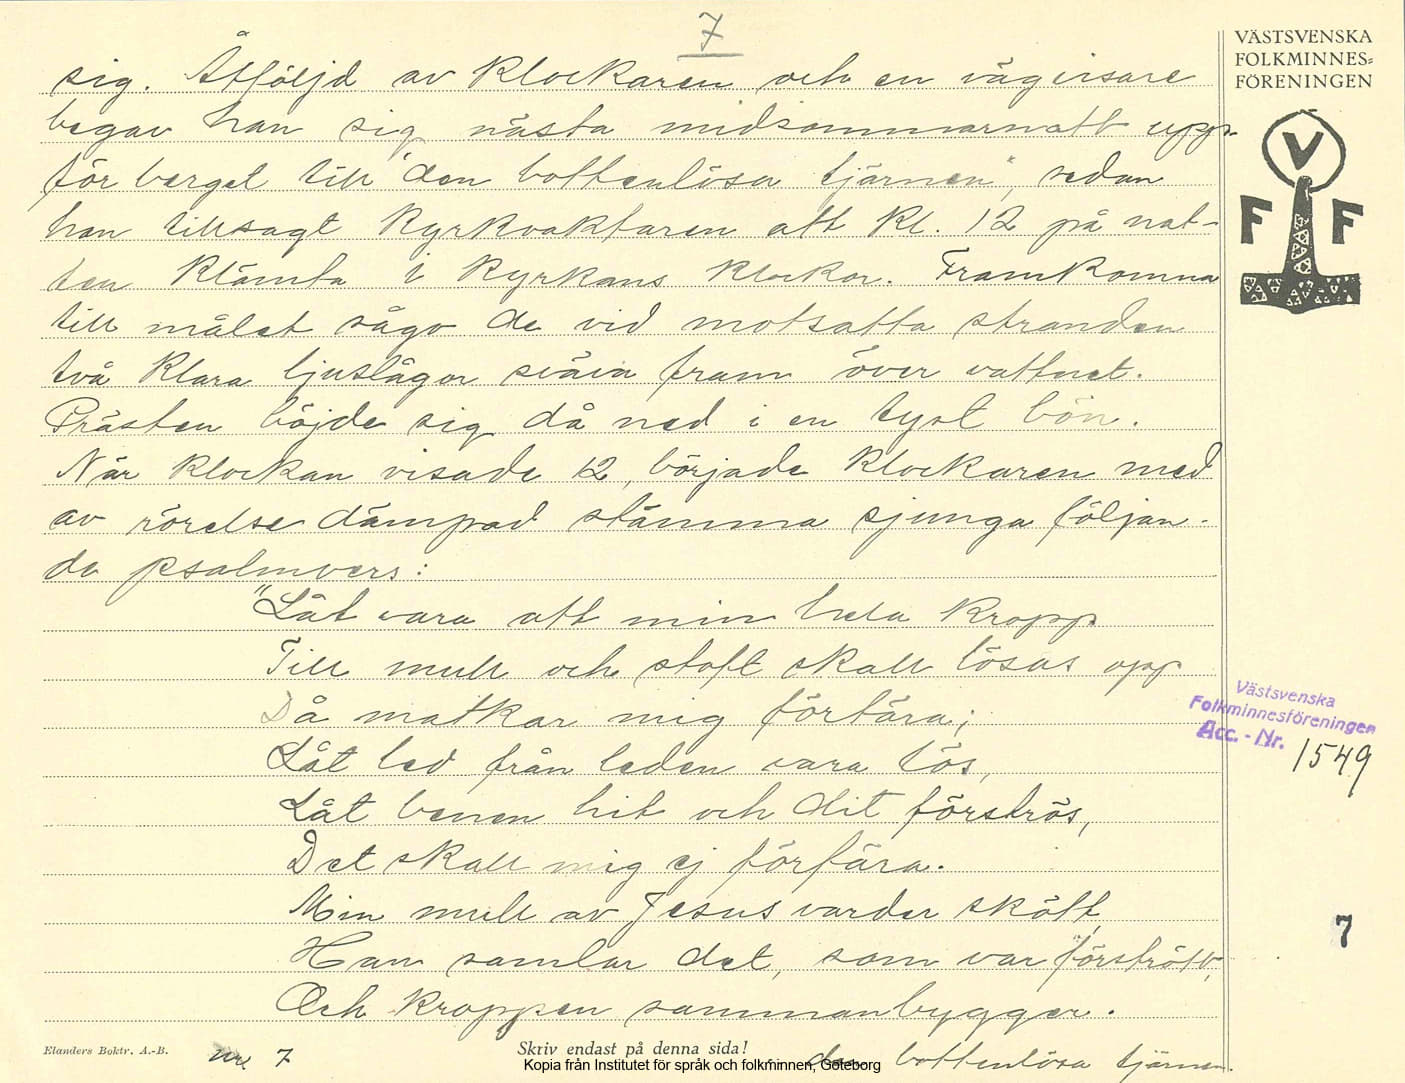 7
VÄSTSVENSKA
FOLKMINNES=
FÖRENINGEN
V
F F
sig. Åtföljd av klockaren och en vägvisare
begav han sig nästa midsommarnatt upp-
för berget till "den bottenlösa tjärnen", sedan
han tillsagt kyrkvaktaren att kl. 12 på nat-
ten klämta i kyrkans klockor. Framkomna
till målet sågo de vid motsatta stranden
två klara ljuslågor sväva fram över vattnet.
Prästen böjde sig då ned i en tyst bön.
När klockan visade 12, började klockaren med
av rörelse dämpad stämma sjunga följan-
de psalmvers:
"Låt vara att min hela kropp
Till mull och stoft skall lösas opp
Då matkar mig förtära;
Låt led från leden vara lös,
Låt benen hit och dit förströs,
Det skall mig ej förfära.
Min mull av Jesus varder skött,
Han samlar det, som var förstrött,
Och kroppen sammanbygger.
Västsvenska
Folkminnesföreningen
Acc. - Nr. 1549
7
Elanders Boktr. A.-B.
nr 7
Skriv endast på denna sida!
Kopia från Institutet för språk och folkminnen, Göteborg
den bottenlösa tjärnen.